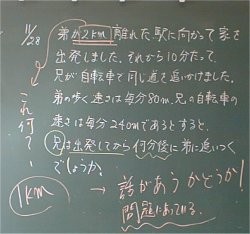 11/28
弟が2km離れた駅に向かって家を
出発しました。それから10分たって、
兄が自転車で同じ道を追いかけました。
弟の歩く速さは毎分80m、兄の自転車の
速さは毎分240mであるとすると、
兄は出発してから何分後に弟に追いつく
でしょうか。
これ何で
1km
→ 誰があうかどうか
問題になっている。